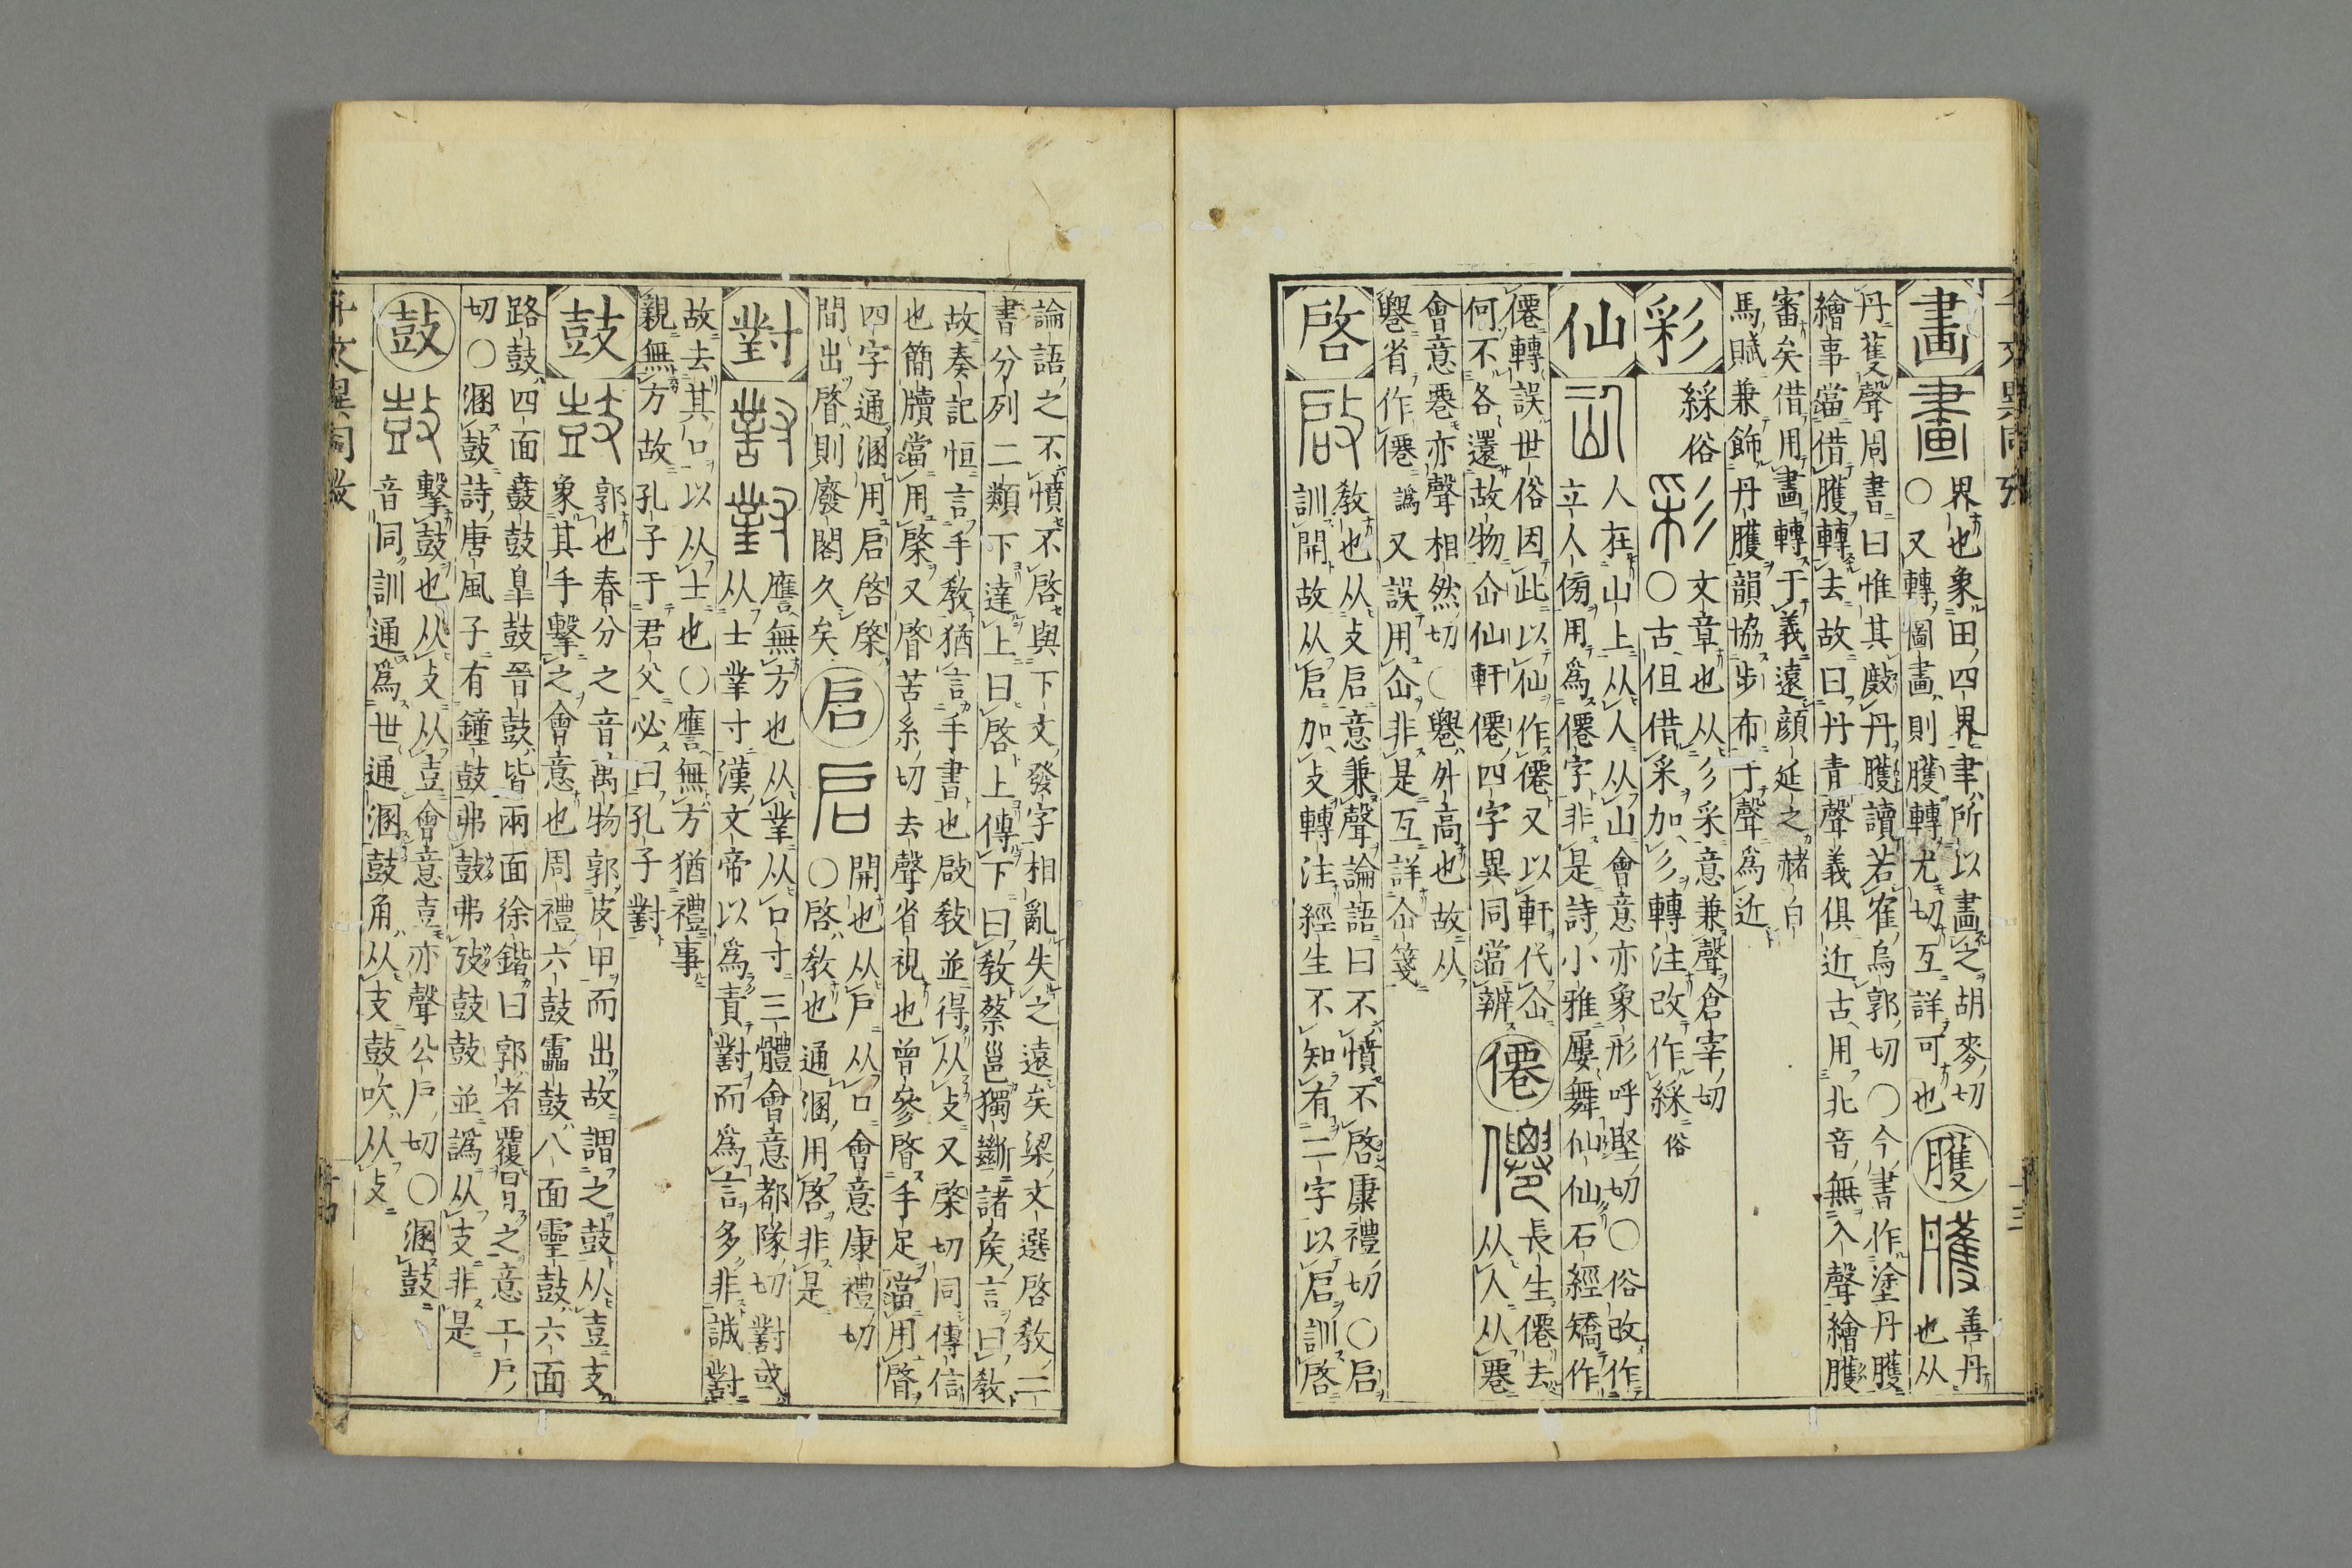 畫 畫 界也象田四界聿所以畫之胡麥切
〇又轉圖畫則臒轉尤切互詳可也 臒 臒 善丹
也从
丹蒦聲周書曰惟其敿丹臒讀若隺烏郭切〇今書作塗丹臒
繪事當借臒轉去故曰丹青聲義俱近古用北音無入聲繪臒
審矣借用畫轉于義遠顔延之赭白
馬賦兼飾丹臒韻協步布于聲爲近
彩 綵俗 彩 文章也从彡采意兼聲倉宰切
〇古但借采加彡轉注改作綵俗
仙 仚 人在山上从人从山會意亦象形呼堅切〇俗改作
立人傍用爲僊字非是詩小雅屢舞仙仙石經矯作
僊轉誤世俗因此以仙作僊又以軒代仚
何不各還故物仚仙軒僊四字異同當辨 僊 僊 長生僊去
从人从䙴
會意䙴亦聲相然切〇䙴外高也故从
䙴省作僊譌又誤用仚非是互詳仚箋
啓 啟 教也从攴启意兼聲論語曰不憤不啓康禮切〇启
訓開故从启加攴轉注經生不知有二字以启訓啓
論語之不憤不啓與下文發字相亂失之遠矣梁文選啓教二
書分列二類下達上曰啓上傳下曰教蔡邕獨斷諸矦言曰教
故奏記恒言手教猶言手書也啟敎並得从攴又棨切同傳信
也簡牘當用棨又晵苦系切去聲省視也曾參晵手足當用晵
四字通溷用启啓棨
間出晵則廢閣久矣 启 启 開也从戶从口會意康禮切
〇啓教也通溷用啓非是
對 對 對 應無方也从丵从口寸三體會意都隊切對或
从士丵寸漢文帝以爲責對而爲言多非誠對
故去其口以从士也〇應無方猶禮事
親無方故孔子于君父必曰孔子對
鼓 鼓 郭也春分之音萬物郭皮甲而出故謂之鼓从壴支
象其手擊之會意也周禮六鼓靁鼓八面靈鼓六面
路鼓四面鼖鼓臯鼓晉鼓皆兩面徐鍇曰郭者覆冒之意工戶
切〇溷鼓詩唐風子有鐘鼓弗鼓弗𢻹鼓鼓並譌从支非是
鼓 鼓 擊鼓也从攴从壴會意壴亦聲公戶切〇溷鼓
音同訓通爲世通溷鼓角从支鼓吹从攴